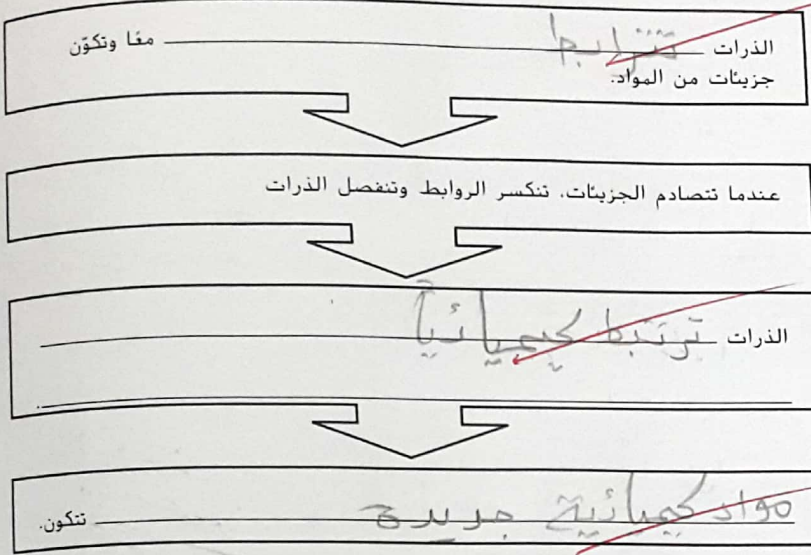 الذرات تترابط معًا وتكوّن
جزيئات من المواد.
عندما تتصادم الجزيئات، تنكسر الروابط وتنفصل الذرات
الذرات ترتبط كيميائياً
مواد كيميائية جديدة تتكون.